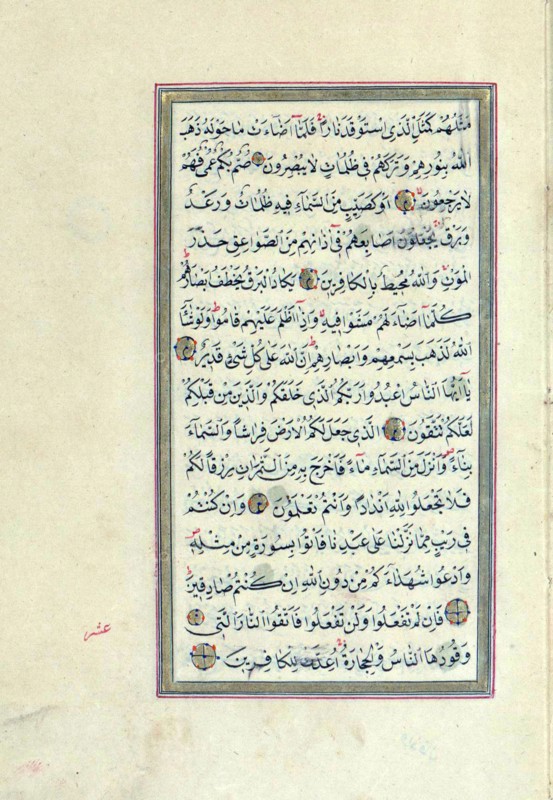 مَثَلُهُمْ كَمَثَلِ الَّذِى اسْتَوْقَدَ نَارًا فَلَمَّا اَضَاءَتْ مَا حَوْلَهُ ذَهَبَ
اللّٰهُ بِنُورِهِمْ وَتَرَكَهُمْ فِى ظُلُمَاتٍ لَا يُبْصِرُونَ صُمٌّ بُكْمٌ عُمْىٌ فَهُمْ
لَا يَرْجِعُونَ اَوْ كَصَيِّبٍ مِنَ السَّمَاءِ فِيهِ ظُلُمَاتٌ وَرَعْدٌ
وَبَرْقٌ يَجْعَلُونَ اَصَابِعَهُمْ فِى اٰذَانِهِمْ مِنَ الصَّوَاعِقِ حَذَرَ
الْمَوْتِ وَاللّٰهُ مُحِيطٌ بِالْكَافِرِينَ يَكَادُ الْبَرْقُ يَخْطَفُ اَبْصَارَهُمْ
كُلَّمَا اَضَاءَ لَهُمْ مَشَوْا فِيهِ وَاِذَا اَظْلَمَ عَلَيْهِمْ قَامُوا وَلَوْ شَاءَ
اللّٰهُ لَذَهَبَ بِسَمْعِهِمْ وَاَبْصَارِهِمْ اِنَّ اللّٰهَ عَلٰى كُلِّ شَىْءٍ قَدِيرٌ
يَا اَيُّهَا النَّاسُ اعْبُدُوا رَبَّكُمُ الَّذِى خَلَقَكُمْ وَالَّذِينَ مِنْ قَبْلِكُمْ
لَعَلَّكُمْ تَتَّقُونَ الَّذِى جَعَلَ لَكُمُ الْاَرْضَ فِرَاشًا وَالسَّمَاءَ
بِنَاءً وَاَنْزَلَ مِنَ السَّمَاءِ مَاءً فَاَخْرَجَ بِهِ مِنَ الثَّمَرَاتِ رِزْقًا لَكُمْ
فَلَا تَجْعَلُوا لِلّٰهِ اَنْدَادًا وَاَنْتُمْ تَعْلَمُونَ وَاِنْ كُنْتُمْ
فِى رَيْبٍ مِمَّا نَزَّلْنَا عَلٰى عَبْدِنَا فَاْتُوا بِسُورَةٍ مِنْ مِثْلِهِ
وَادْعُوا شُهَدَاءَكُمْ مِنْ دُونِ اللّٰهِ اِنْ كُنْتُمْ صَادِقِينَ
فَاِنْ لَمْ تَفْعَلُوا وَلَنْ تَفْعَلُوا فَاتَّقُوا النَّارَ الَّتِى
وَقُودُهَا النَّاسُ وَالْحِجَارَةُ اُعِدَّتْ لِلْكَافِرِينَ
عشر